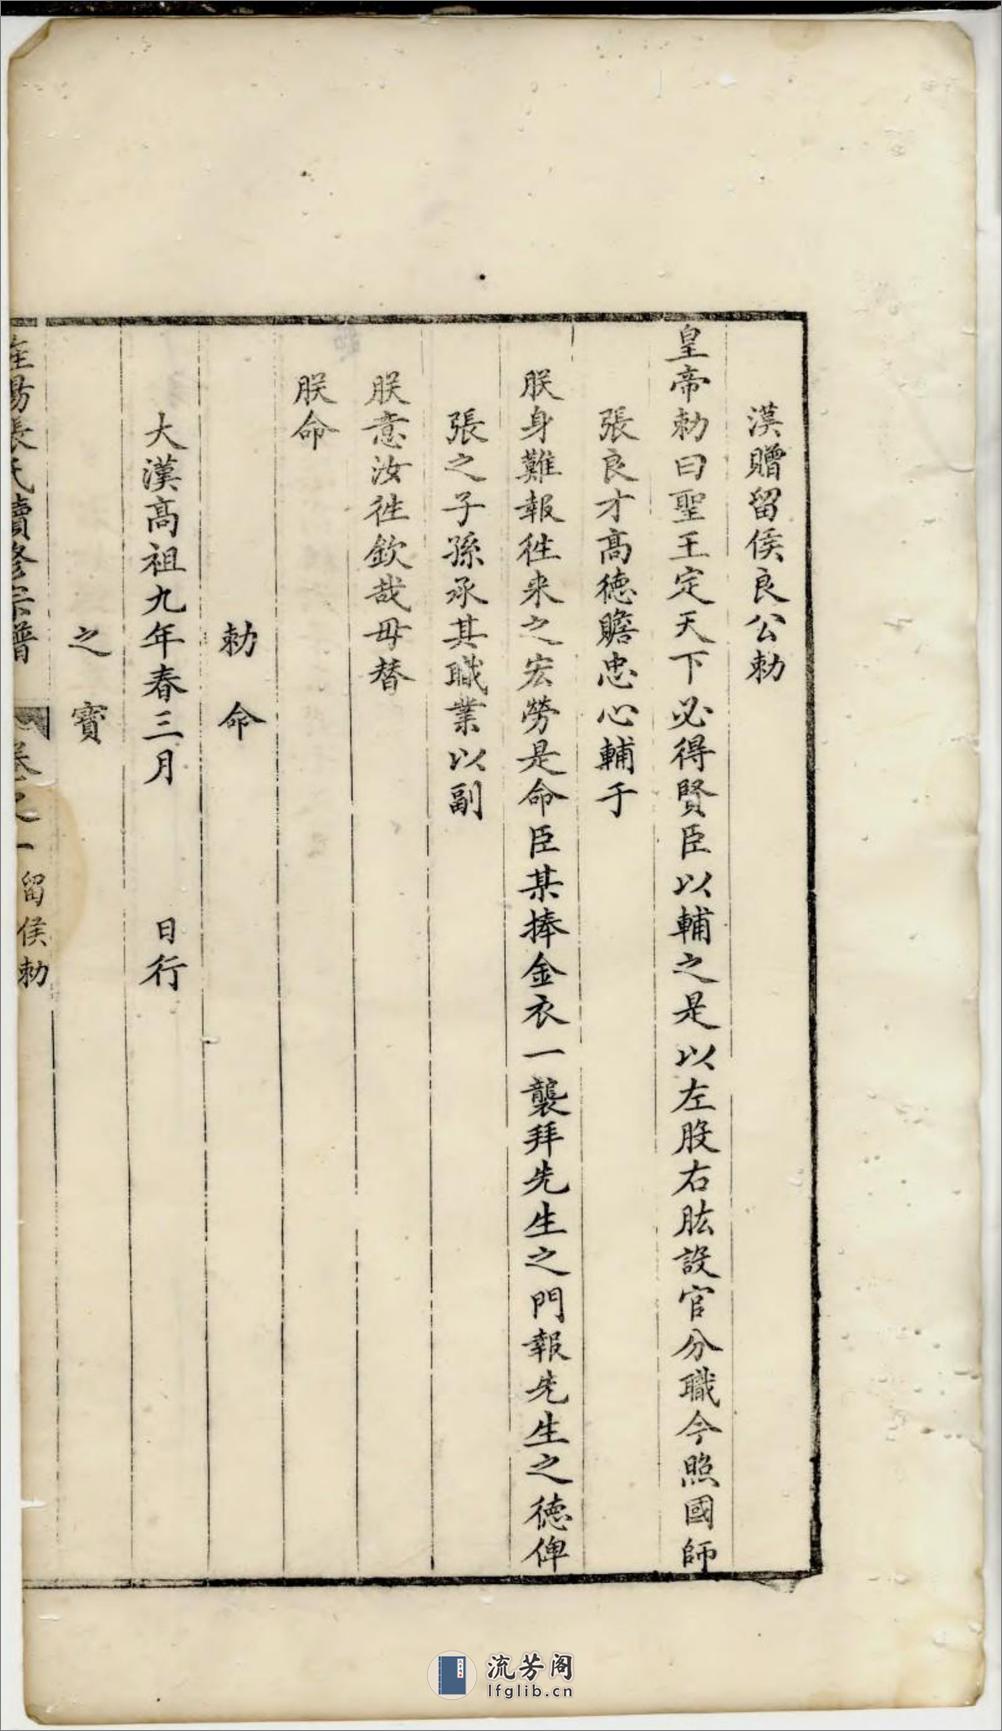 漢贈留侯良公勅
皇帝勅曰聖王定天下必得賢臣以輔之是以左股右肱設官分職今照國師
張良才高德贍忠心輔于
朕身難報徃来之宏勞是命臣某捧金衣一襲拜先生之門報先生之德俾
張之子孫承其職業以副
朕意汝徃欽哉毋替
朕命
勅命
大漢高祖九年春三月 日行
之寶
張氏續修宗譜 卷之一 留侯勅
流芳阁
lfglib.cn